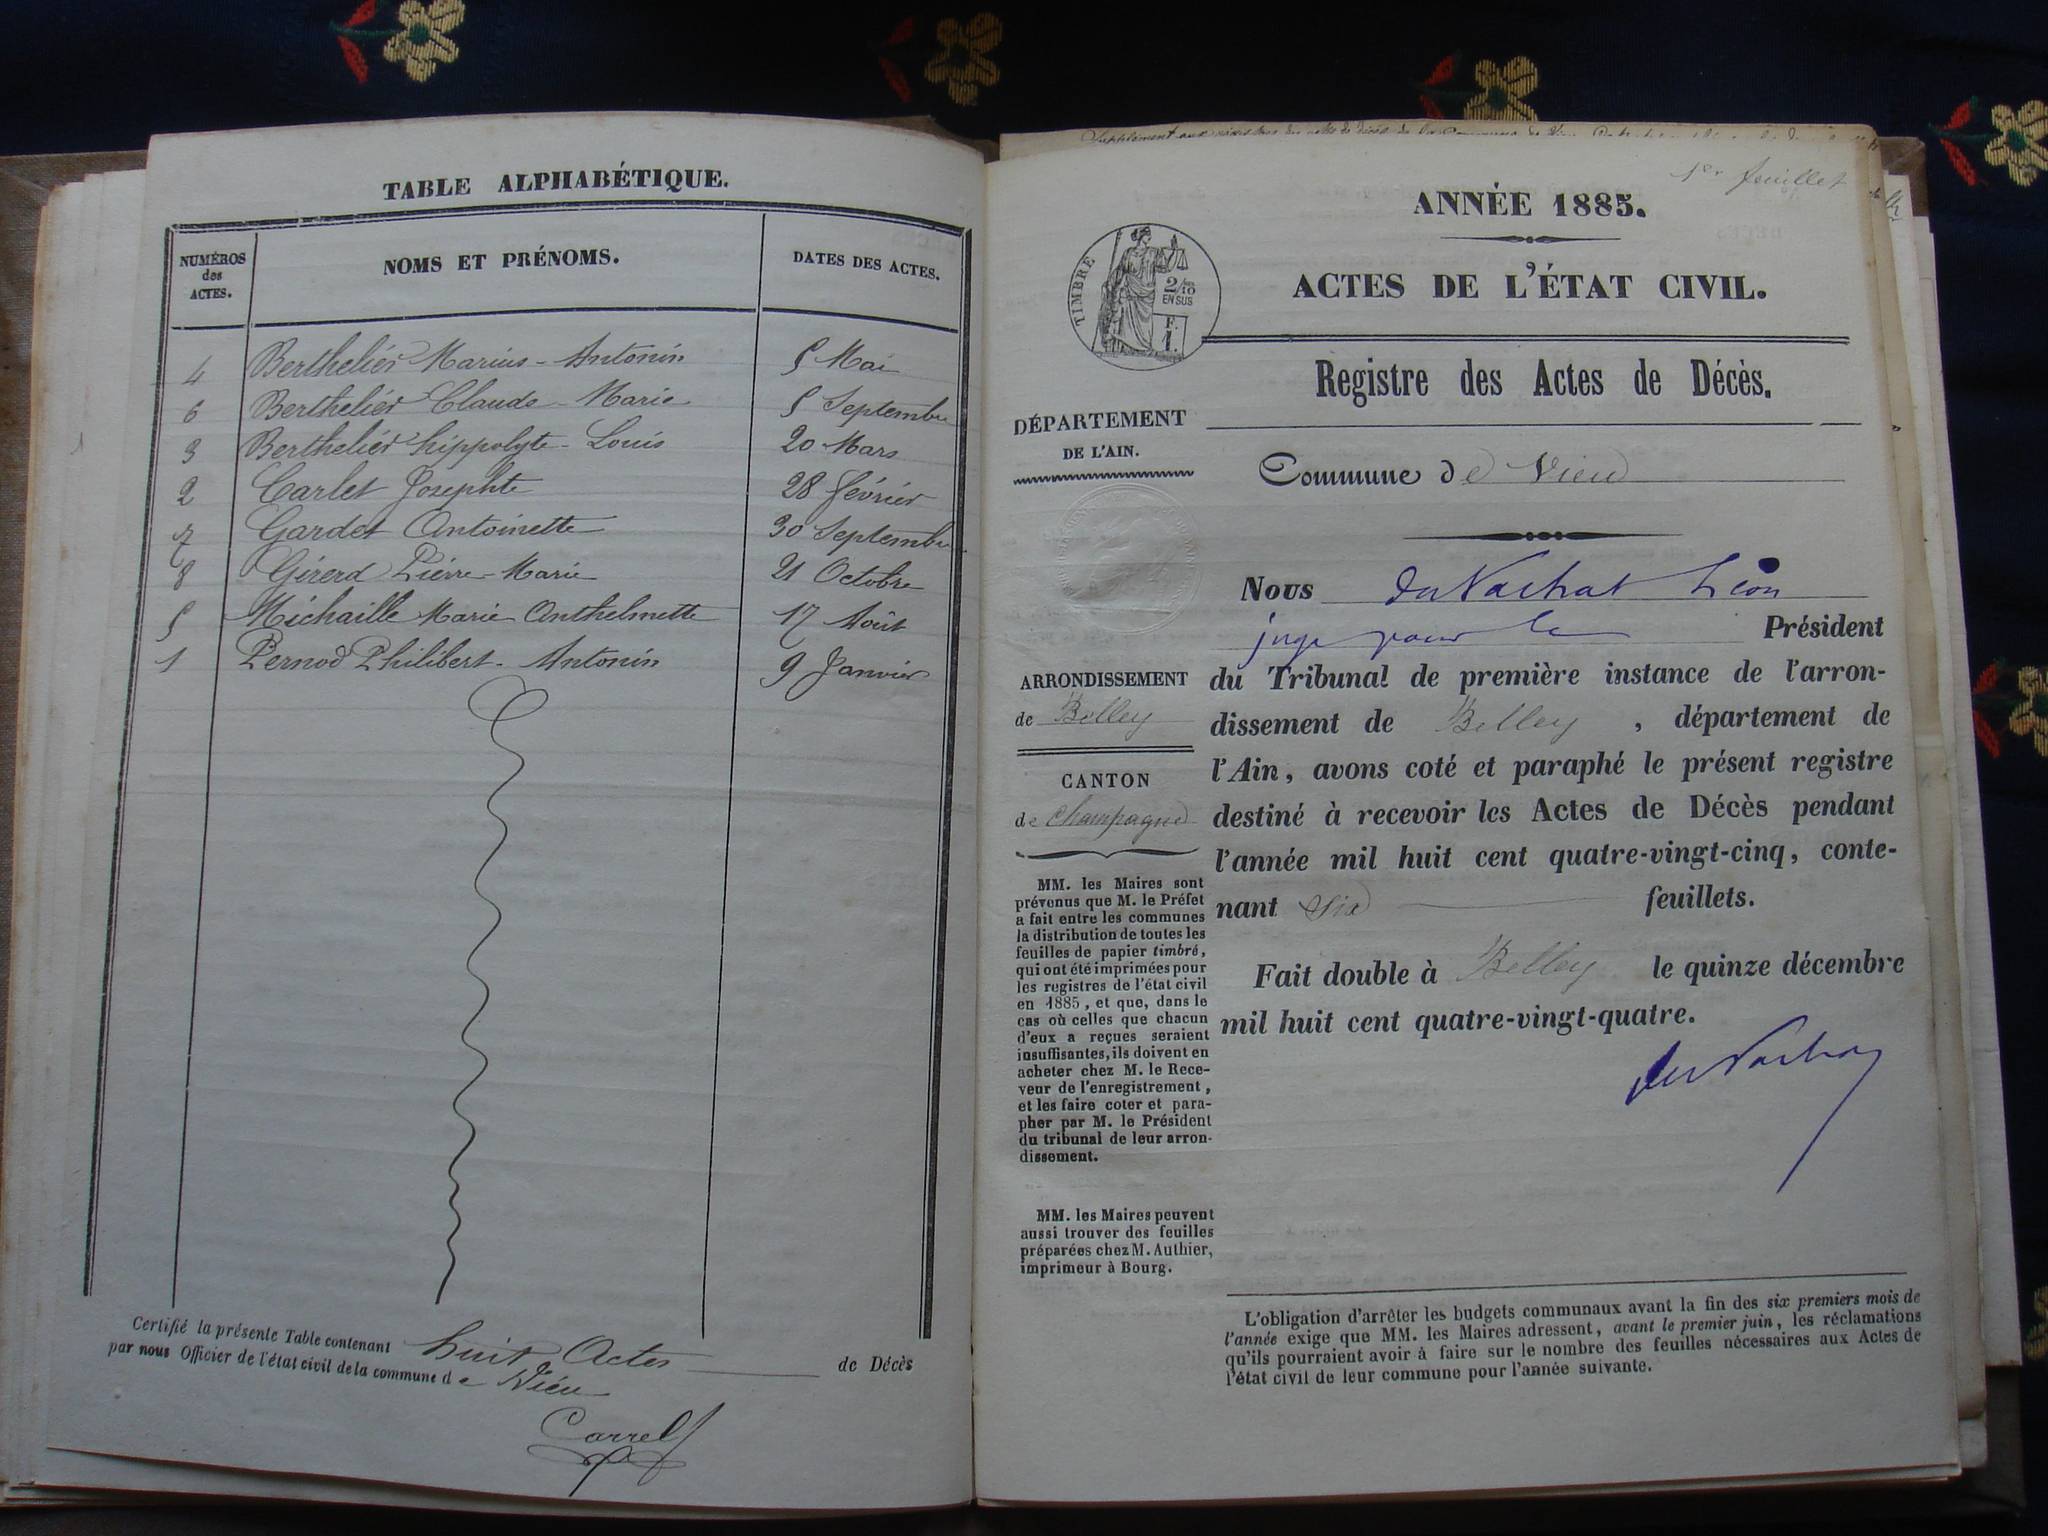 TABLE ALPHABÉTIQUE.
NUMÉROS des ACTES. NOMS ET PRÉNOMS. DATES DES ACTES.
4 Berthelier Marius-Antonin 5 Mai
6 Berthelier Claude-Marie 5 Septembre
3 Berthelier hippolyte-Louis 20 Mars
2 Carlet Josephte 28 février
7 Gardet Antoinette 30 Septembre
8 Girerd Pierre-Marie 21 Octobre
5 Michaille Marie Anthelmette 17 Août
1 Pernod Philibert-Antonin 9 Janvier
Certifié la présente Table contenant huit Actes de Décès
par nous Officier de l'état civil de la commune de Vieu
Carrel
1er feuillet
ANNÉE 1885.
ACTES DE L'ÉTAT CIVIL.
TIMBRE
2/10
EN SUS
F.
1.
Registre des Actes de Décès.
DÉPARTEMENT
DE L'AIN.
Commune de Vieu
Nous du Vachat Léon
juge pour le Président
du Tribunal de première instance de l'arron-
dissement de Belley, département de
l'Ain, avons coté et paraphé le présent registre
destiné à recevoir les Actes de Décès pendant
l'année mil huit cent quatre-vingt-cinq, conte-
nant six feuillets.
Fait double à Belley le quinze décembre
mil huit cent quatre-vingt-quatre.
du Vachat
ARRONDISSEMENT
de Belley
CANTON
de Champagne
MM. les Maires sont
prévenus que M. le Préfet
a fait entre les communes
la distribution de toutes les
feuilles de papier timbré,
qui ont été imprimées pour
les registres de l'état civil
en 1885, et que, dans le
cas où celles que chacun
d'eux a reçues seraient
insuffisantes, ils doivent en
acheter chez M. le Rece-
veur de l'enregistrement,
et les faire coter et para-
pher par M. le Président
du tribunal de leur arron-
dissement.
MM. les Maires peuvent
aussi trouver des feuilles
préparées chez M. Authier,
imprimeur à Bourg.
L'obligation d'arrêter les budgets communaux avant la fin des six premiers mois de
l'année exige que MM. les Maires adressent, avant le premier juin, les réclamations
qu'ils pourraient avoir à faire sur le nombre des feuilles nécessaires aux Actes de
l'état civil de leur commune pour l'année suivante.